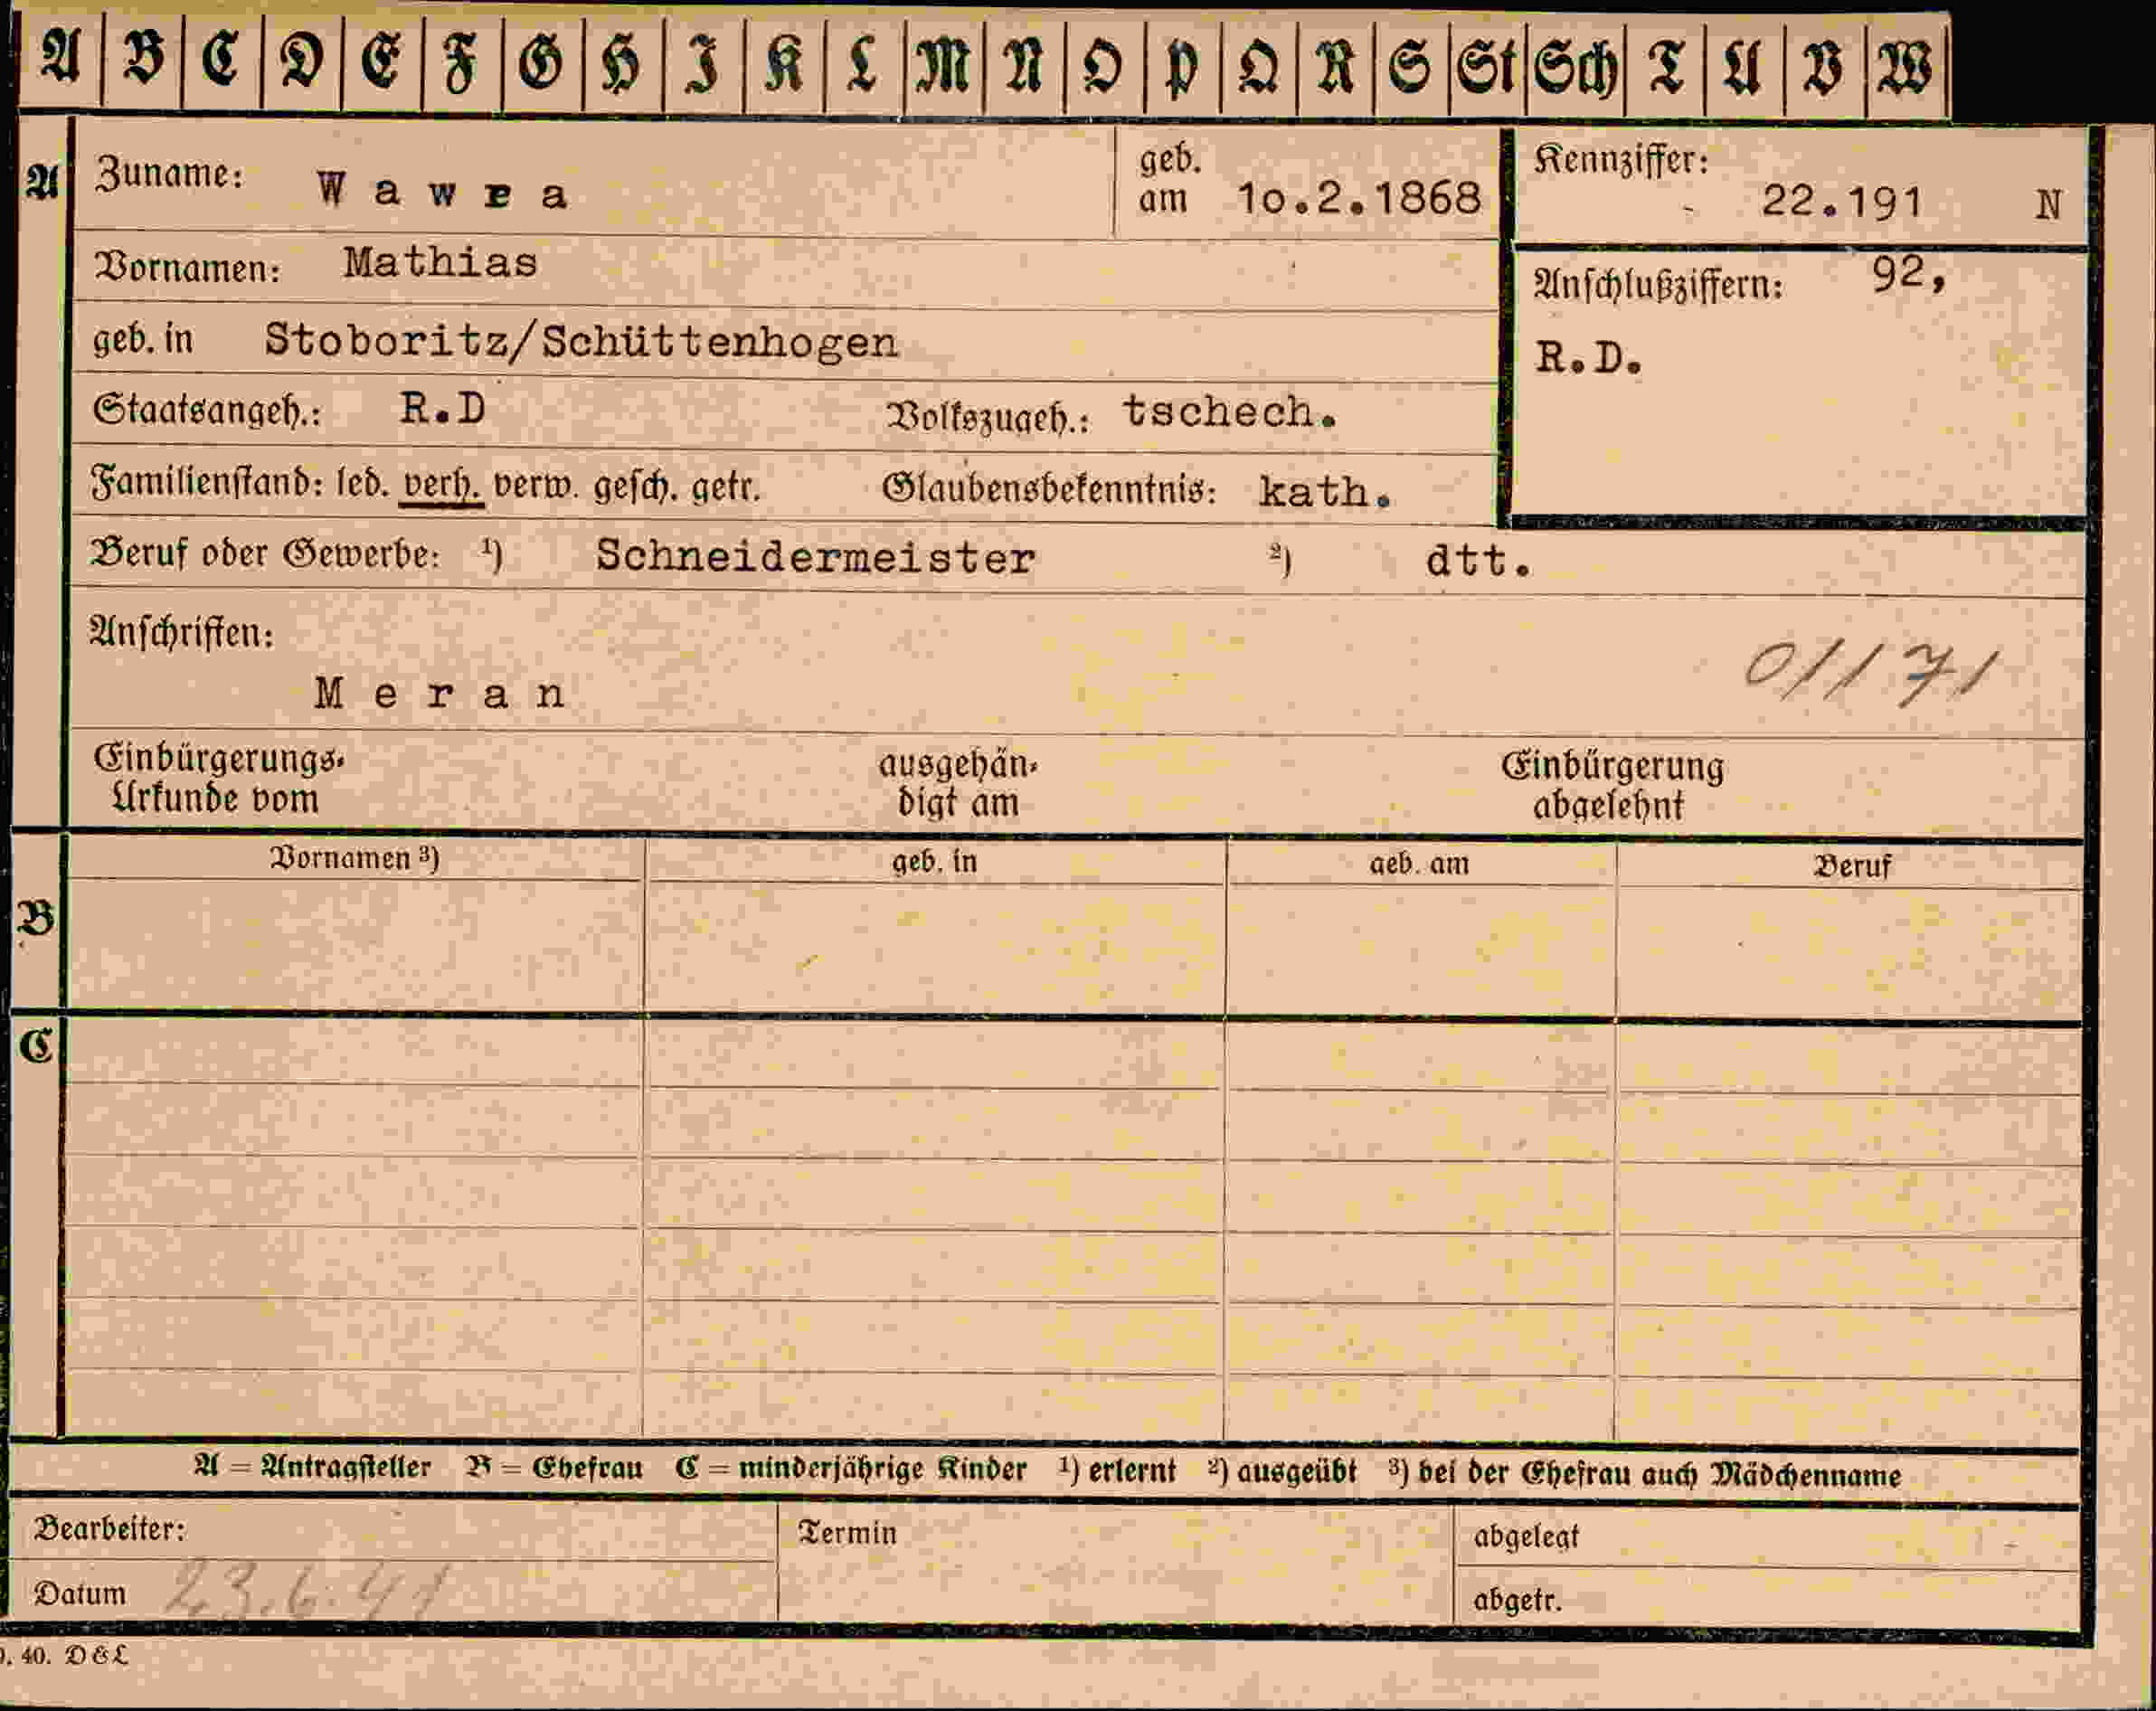 A B C D E F G H I K L M N O P Q R S St Sch T U V W
A Zuname: W a w r a geb. am 1o.2.1868 Kennziffer: 22.191 N
Vornamen: Mathias Anschlußziffern: 92,
geb. in Stoboritz/Schüttenhogen R.D.
Staatsangeh.: R.D Volkszugeh.: tschech.
Familienstand: led. verh. verw. gesch. getr. Glaubensbekenntnis: kath.
Beruf oder Gewerbe: ¹) Schneidermeister ²) dtt.
Anschriften:
M e r a n 01171
Einbürgerungs- ausgehän- Einbürgerung
Urkunde vom digt am abgelehnt
Vornamen ³) geb. in geb. am Beruf
B
C
A = Antragsteller B = Ehefrau C = minderjährige Kinder ¹) erlernt ²) ausgeübt ³) bei der Ehefrau auch Mädchenname
Bearbeiter: Termin abgelegt
Datum 23.6.41 abgetr.
40. D&L